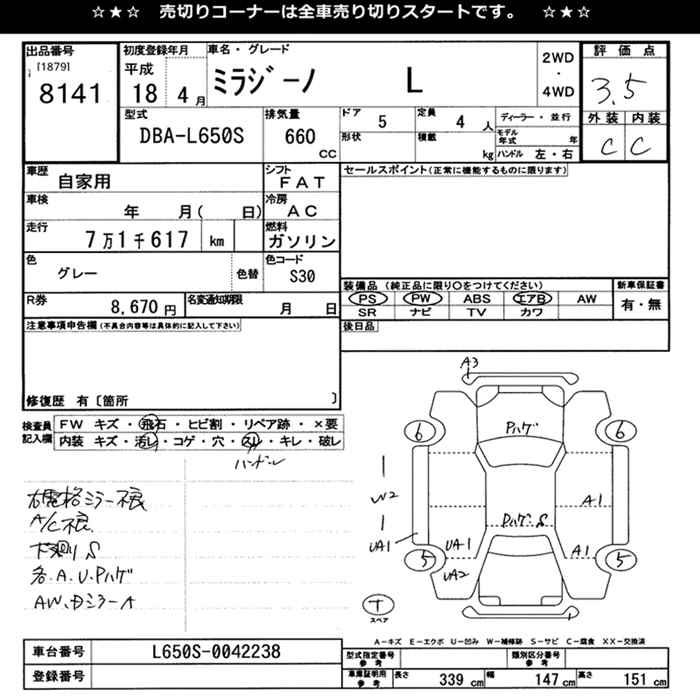 ☆★☆ 売切りコーナーは全車売り切りスタートです。 ☆★☆
出品番号 初度登録年月 車名・グレード 評価点
[1879] 平成 2WD
8141 18 4 月 ミラジーノ L ・ 3.5
4WD
型式 排気量 ドア 5 定員 4 人 ディーラー・並行 外装 内装
DBA-L650S 660 cc 形状 積載 kg モデル年式 年 C C
ハンドル 左・右
車歴 自家用 シフト FAT セールスポイント(正常に機能するものに限ります)
車検 年 月( 日) 冷房 AC
走行 7万1千617 km 燃料 ガソリン
色 グレー 色替 色コード S30
装備品 (純正品に限り○をつけてください) 新車保証書
R券 8,670 円 名変通知期限 月 日 PS PW ABS エアB AW 有・無
SR ナビ TV カワ
注意事項申告欄(不具合内容等は具体的に記入して下さい) 後日品
修復歴 有〔箇所 〕
検査員記入欄 FW キズ・飛石・ヒビ割・リペア跡・×要
内装 キズ・汚レ・コゲ・穴・スレ・キレ・破レ
ハンドル
右電格ミラー不良
A/C不良
下廻りS
各.A.U.Pハゲ
A3
6 Pハゲ 6
W2 A1
Pハゲ S
UA1 UA1 A1
5 UA2 5
T
スペア 1
A-キズ E-エクボ U-凹み W-補修跡 S-サビ C-腐食 XX-交換済
車台番号 L650S-0042238 型式指定番号 参考 類別区分番号 参考
登録番号 車庫証明用 参考 長さ 339 cm 幅 147 cm 高さ 151 cm